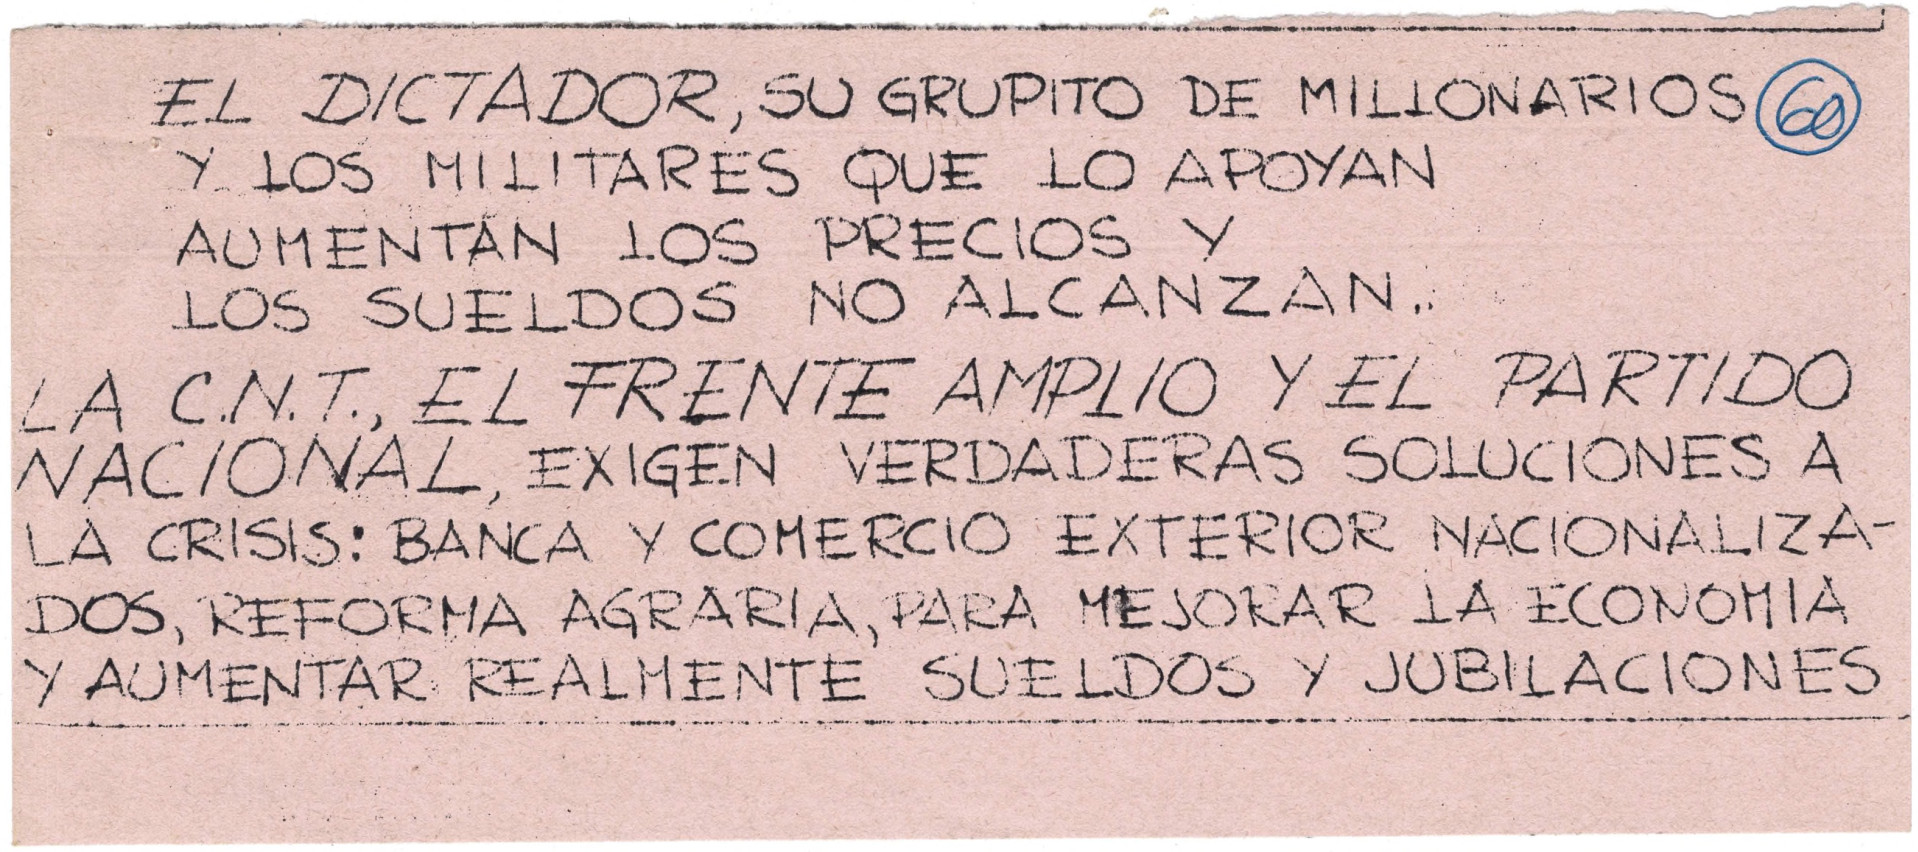 EL DICTADOR, SU GRUPITO DE MILLONARIOS 60
Y LOS MILITARES QUE LO APOYAN
AUMENTAN LOS PRECIOS Y
LOS SUELDOS NO ALCANZAN..
LA C.N.T., EL FRENTE AMPLIO Y EL PARTIDO
NACIONAL, EXIGEN VERDADERAS SOLUCIONES A
LA CRISIS: BANCA Y COMERCIO EXTERIOR NACIONALIZA-
DOS, REFORMA AGRARIA, PARA MEJORAR LA ECONOMIA
Y AUMENTAR REALMENTE SUELDOS Y JUBILACIONES